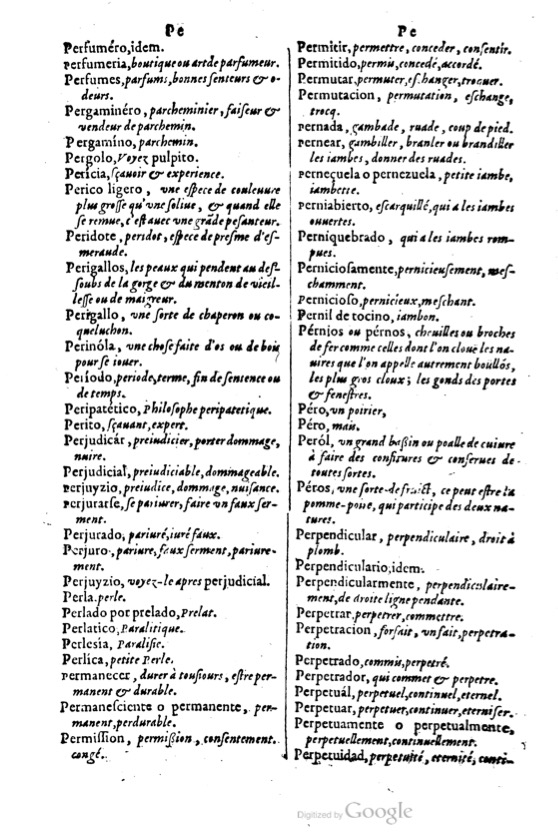 Pe
Perfuméro, idem.
Perfumeria, boutique ou art de parfumeur.
Perfumes, parfums, bonnes senteurs & o-
deurs.
Pergaminéro, parcheminier, faiseur &
vendeur de parchemin.
Pergamino, parchemin.
Pergolo, Voyez pulpito.
Pericia, sçavoir & experience.
Perico ligero, vne espece de couleuure
plus grosse qu'vne soliue, & quand elle
se remue, c'est auec vne grãde pesanteur.
Peridote, peridot, espece de presme d'es-
meraude.
Perigallos, les peaux qui pendent au des-
soubs de la gorge & du menton de vieil-
lesse ou de maigreur.
Perigallo, vne sorte de chaperon ou co-
queluchon.
Perinóla, vne chose faite d'os ou de bois
pour se iouer.
Período, periode, terme, fin de sentence ou
de temps.
Peripatético, Philosophe peripatetique.
Perito, sçauant, expert.
Perjudicár, preiudicier, porter dommage,
nuire.
Perjudicial, preiudiciable, dommageable.
Perjuyzio, preiudice, dommage, nuisance.
Perjurarse, se pariurer, faire vn faux ser-
ment.
Perjurado, pariuré, iuré faux.
Perjuro, pariure, faux serment, pariure-
ment.
Perjuyzio, voyez-le apres perjudicial.
Perla, perle.
Perlado por prelado, Prelat.
Perlatico, Paralitique.
Perlesía, Paralisie.
Perlica, petite Perle.
Permanecer, durer à tousiours, estre per-
manent & durable.
Permanesciente o permanente, per-
manent, perdurable.
Permission, permißion, consentement.
congé.
Pe
Permitir, permettre, conceder, consentir.
Permitido, permis, concedé, accordé.
Permutar, permuter, eschanger, troquer.
Permutacion, permutation, eschange,
trocq.
Pernada, gambade, ruade, coup de pied.
Pernear, gambiller, branler ou brandiller
les iambes, donner des ruades.
Perneçuela o pernezuela, petite iambe,
iambette.
Perniabierto, escarquillé, qui a les iambes
ouuertes.
Perniquebrado, qui a les iambes rom-
pues.
Perniciosamente, pernicieusement, mes-
chamment.
Pernicioso, pernicieux, meschant.
Pernil de tocino, iambon.
Pérnios ou pérnos, cheuilles ou broches
de fer comme celles dont l'on cloue les na-
uires que l'on appelle autrement boullós,
les plus gros cloux; les gonds des portes
& fenestres.
Péro, vn poirier,
Péro, mais.
Peról, vn grand baßin ou poalle de cuiure
à faire des confitures & conserues de
toutes sortes.
Péros, vne sorte de fruict, ce peut estre la
pomme-poire, qui participe des deux na-
tures.
Perpendicular, perpendiculaire, droit à
plomb.
Perpendiculario, idem.
Perpendicularmente, perpendiculaire-
ment, de droite ligne pendante.
Perpetrar, perpetrer, commettre.
Perpetracion, forfait, vn fait, perpetra-
tion.
Perpetrado, commis, perpetré.
Perpetrador, qui commet & perpetre.
Perpetuál, perpetuel, continuel, eternel.
Perpetuar, perpetuer, continuer, eterniser.
Perpetuamente o perpetualmente,
perpetuellement, continuellement.
Perpetuidad, perpetuité, eternité, conti-
Digitized by Google